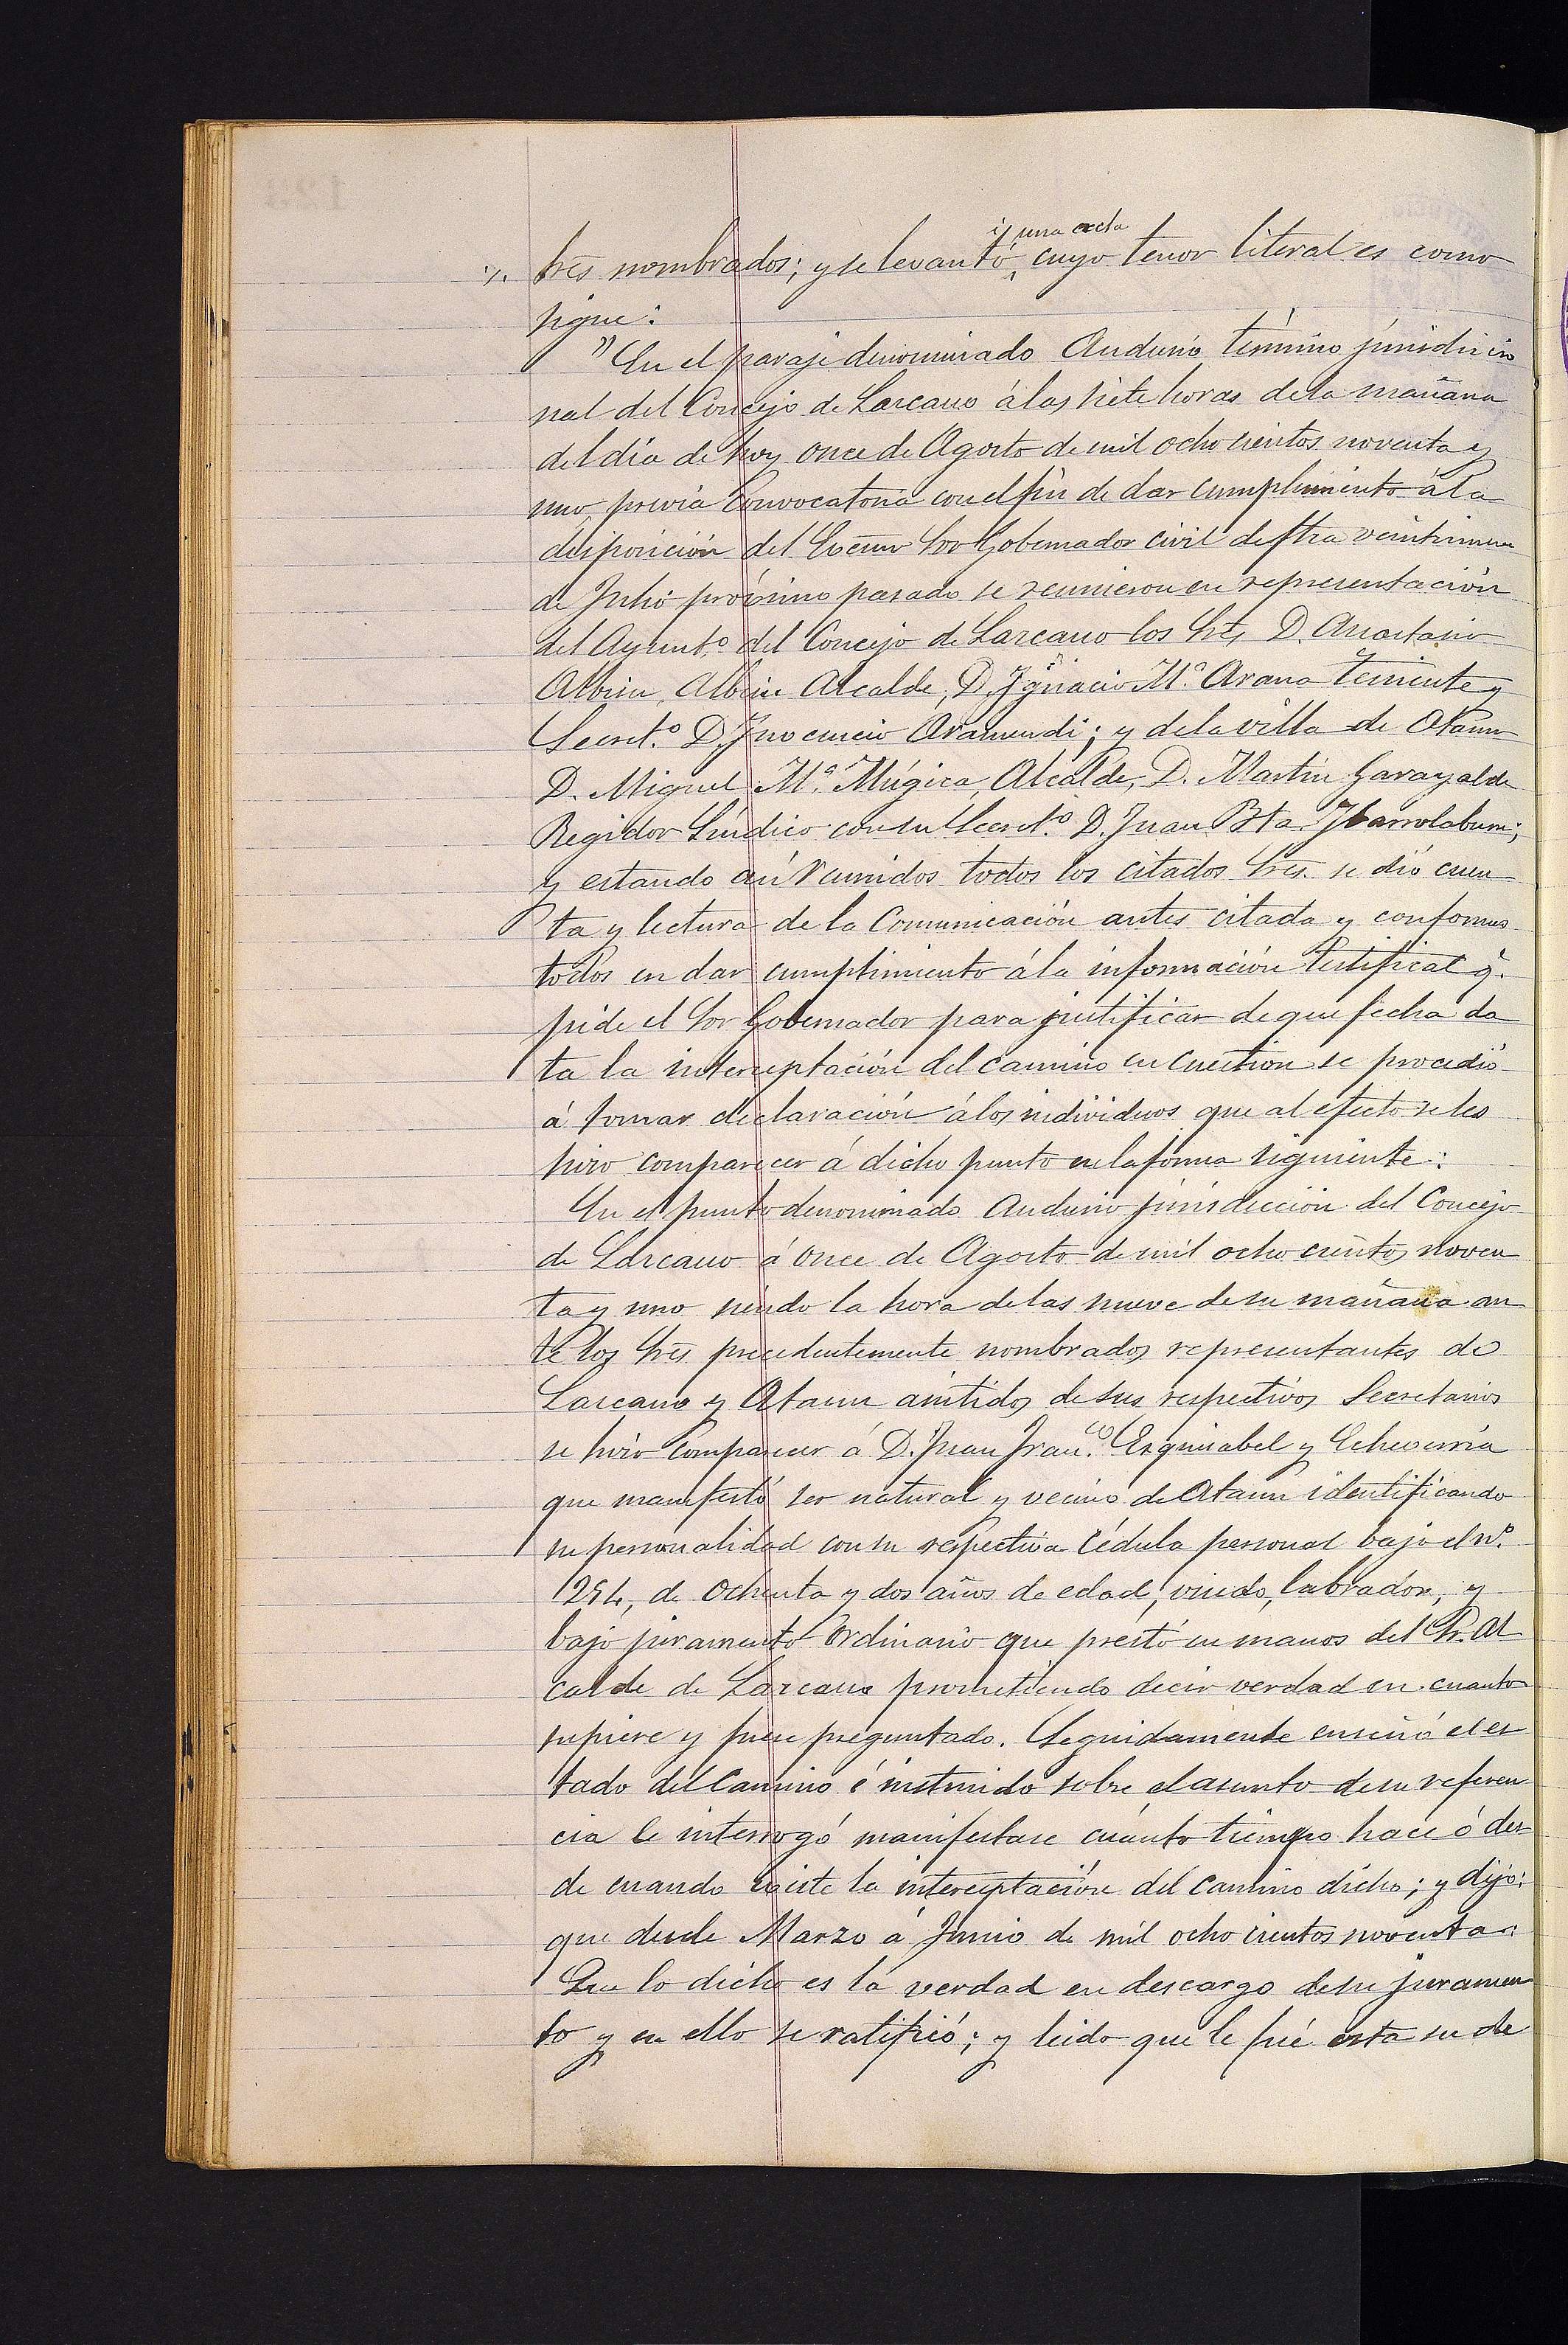 y una acta
·/. tres nombrados; y se levantó, cuyo tenor literal es como
sigue:
"En el paraje denominado Andurio término jurisdiccio
nal del Concejo de Lazcano á las siete horas de la mañana
del día de hoy once de Agosto de mil ochocientos noventa y
uno, previa Convocatoria con el fin de dar cumplimiento á la
disposición del Excmo Sor Gobernador civil de fha veintinueve
de Julio próximo pasado se reunieron en representación
del Ayunto. del Concejo de Lazcano los Sres D. Anastasio
Albisu Albisu Alcalde, D. Ygnacio Mª Arana Teniente y
Secretº D. Ynocencio Aramendi; y de la villa de Ataun
D. Miguel Mª Múgica, Alcalde, D. Martin Garayalde
Regidor Síndico con su Secretº D. Juan Bta.
y estando así reunidos todos los citados Sres. se dió cuen
ta y lectura de la Comunicación antes citada y conformes
todos en dar cumplimiento á la información testifical q.
pide el Sor Gobernador para justificar de que fecha da
ta la interceptación del camino en cuestion se procedió
á tomar declaración á los individuos que al efecto se les
hizo comparecer á dicho punto en la forma siguiente:
En el punto denominado Andurio jurisdicción del Concejo
de Lazcano á once de Agosto de mil ochocientos noven
ta y uno siendo la hora de las nueve de su mañana an
te los Sres precedentemente nombrados representantes de
Lazcano y Ataun asistidos de sus respectivos Secretarios
se hizo comparecer á D. Juan Franco. Esquisabel y Echeverría
que manifestó ser natural y vecino de Ataun identificando
su personalidad con su respectiva cédula personal bajo el nº
de ochenta y dos años de edad, viudo, labrador, y
bajo juramento ordinario que prestó en manos del Sr. Al
calde de Lazcano prometiendo decir verdad en cuanto
supiere y fuere preguntado. Seguidamente enseñó el es
tado del Camino é instruido sobre el asunto de su referen
cia le interrogó manifestase cuánto tiempo hace ó des
de cuando existe la interceptación del camino dicho; y dijo:
que desde Marzo á Junio de mil ochocientos noventa:
Que lo dicho es la verdad en descargo de su juramen
to y en ello se ratificó; y leido que le fué esta su de